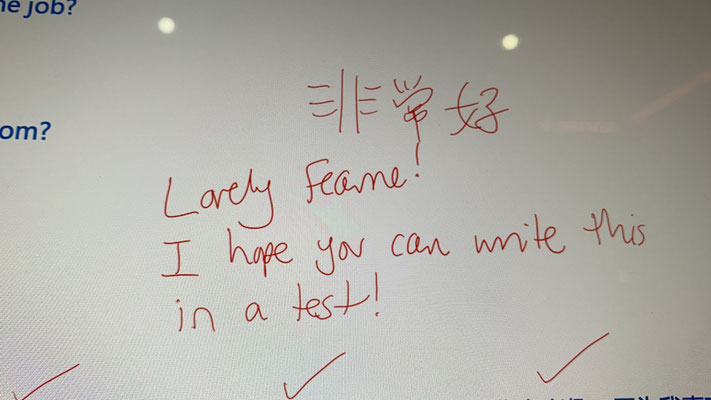 he job?
om?
非常好
Lovely Fearne!
I hope you can write this
in a test!